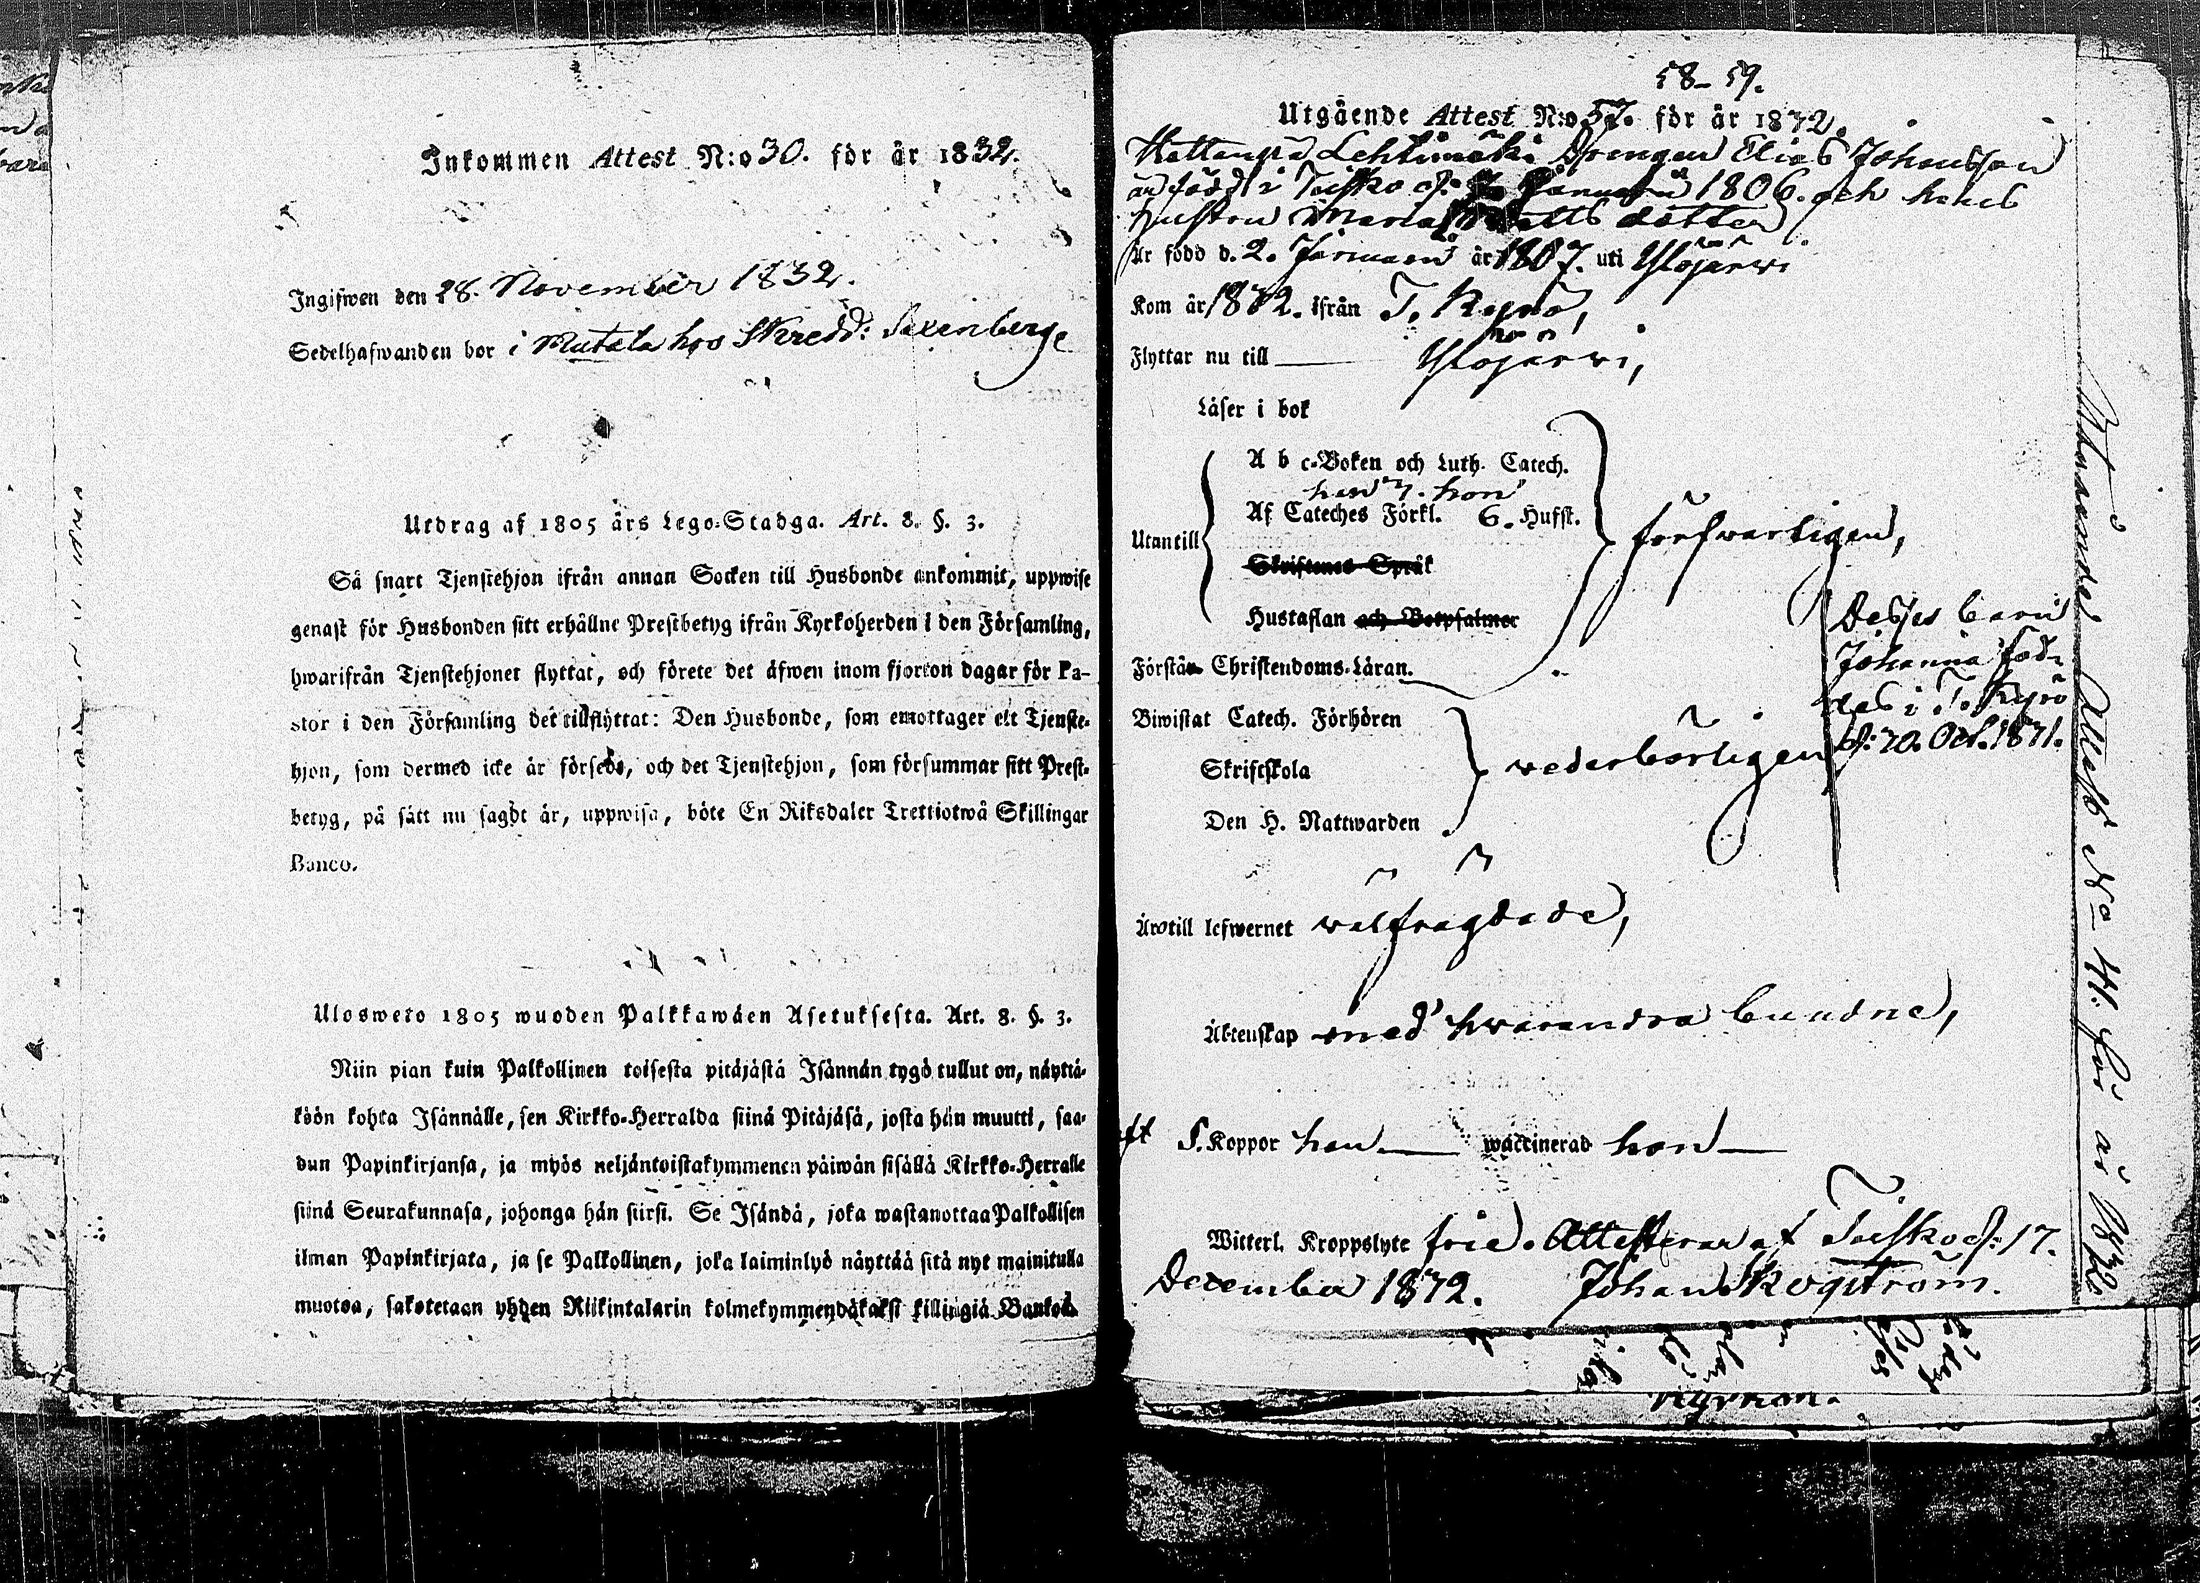 Inkommen Attest N:o 30. för år 1832.
Ingifwen den 28. November 1832.
Sedelhafwanden bor i Mutala hos Skredd: Saxenberg
Utdrag af 1805 års Lego-Stadga. Art. 8. §. 3.
Så snart Tjenstehjon ifrån annan Socken till Husbonde ankommit, uppwise
genast för Husbonden sitt erhållne Prestbetyg ifrån Kyrkoherden i den Församling,
hwarifrån Tjenstehjonet flyttat, och förete det äfwen inom fjorton dagar för Pa-
stor i den Församling det tillflyttat: Den Husbonde, som emottager ett Tjenste-
hjon, som dermed icke är försedt, och det Tjenstehjon, som försummar sitt Prest-
betyg, på sätt nu sagdt är, uppwisa, böte En Riksdaler Trettiotwå Skillingar
Banco.
Ulosweto 1805 wuoden Palkkawäen Asetuksesta. Art. 8. §. 3.
Niin pian kuin Palkollinen toisesta pitäjästä Isännän tygö tullut on, näyttä-
köön kohta Isännälle, sen Kirkko-Herralda siinä Pitäjäsä, josta hän muutti, saa-
dun Papinkirjansa, ja myös neljäntoistakymmenen päiwän sisällä Kirkko-Herralle
siinä Seurakunnasa, johonga hän siirsi. Se Isändä, joka wastanottaa Palkollisen
ilman Papinkirjata, ja se Palkollinen, joka laiminlyö näyttää sitä nyt mainitulla
muotoa, sakotetaan yhden Riikintalarin kolmekymmendäkaksi killingiä Bankos.
58-59.
Utgående Attest N:o 57. för år 1832.
Lehtimäki Drengen Elias Johansson
är född i Teisko d. Januarii 1806. och hans
hustru Maria Matts dotter
Är född d. 2. Januarii år 1807. uti Ylöjärwi
Kom år 1832. ifrån T. Kyro,
Flyttar nu till Ylöjärwi,
Läser i bok
A b c-Boken och Luth. Catech.
han 7. hon
Af Cateches Förkl. 6. Hufst.
Utantill
förswarligen,
Skriftenes Språk
Hustaflan och Botpsalmer
Förstår Christendoms-Läran.
Dess barn
Johanna föd-
des i T. Kyrö
d: 20. Oct. 1831.
Biwistat Catech. Förhören
Skriftskola
wederbörligen
Den H. Nattwarden
Ärotill lefwernet wälfrägdade,
Äktenskap med hwarandra bundne,
Haft S. Koppor han wäccinerad hon
Witterl. Kroppslyte frie. Attesterar af Teisko d: 17.
December 1832. Johan Skogström.
Attest No 41. för år 1832.